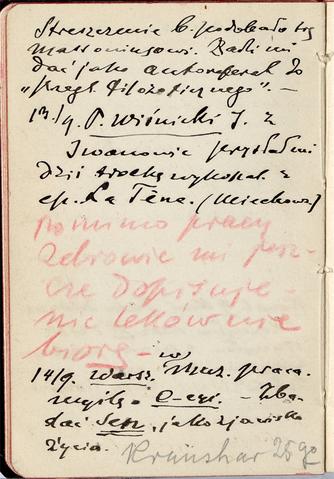 Streszczenie b. podobało się
Mattoningowi. Radzi mi
dać jako autoreferat do
„Przegl. Filozoficznego". —
13/9. P. Wiśnicki J. z
Iwanowic przysłał mi
dziś trochę wykopal. z
ep. La Tène. (Miechowz)
pomimo pracy
zdrowie mi jesz-
cze dopisuje —
nic leków nie
biorę —
14/9. w Warsz. Muz. praca.
myślę o
dać Sen, jako zjawisko
życia.
Kraushar 25 go